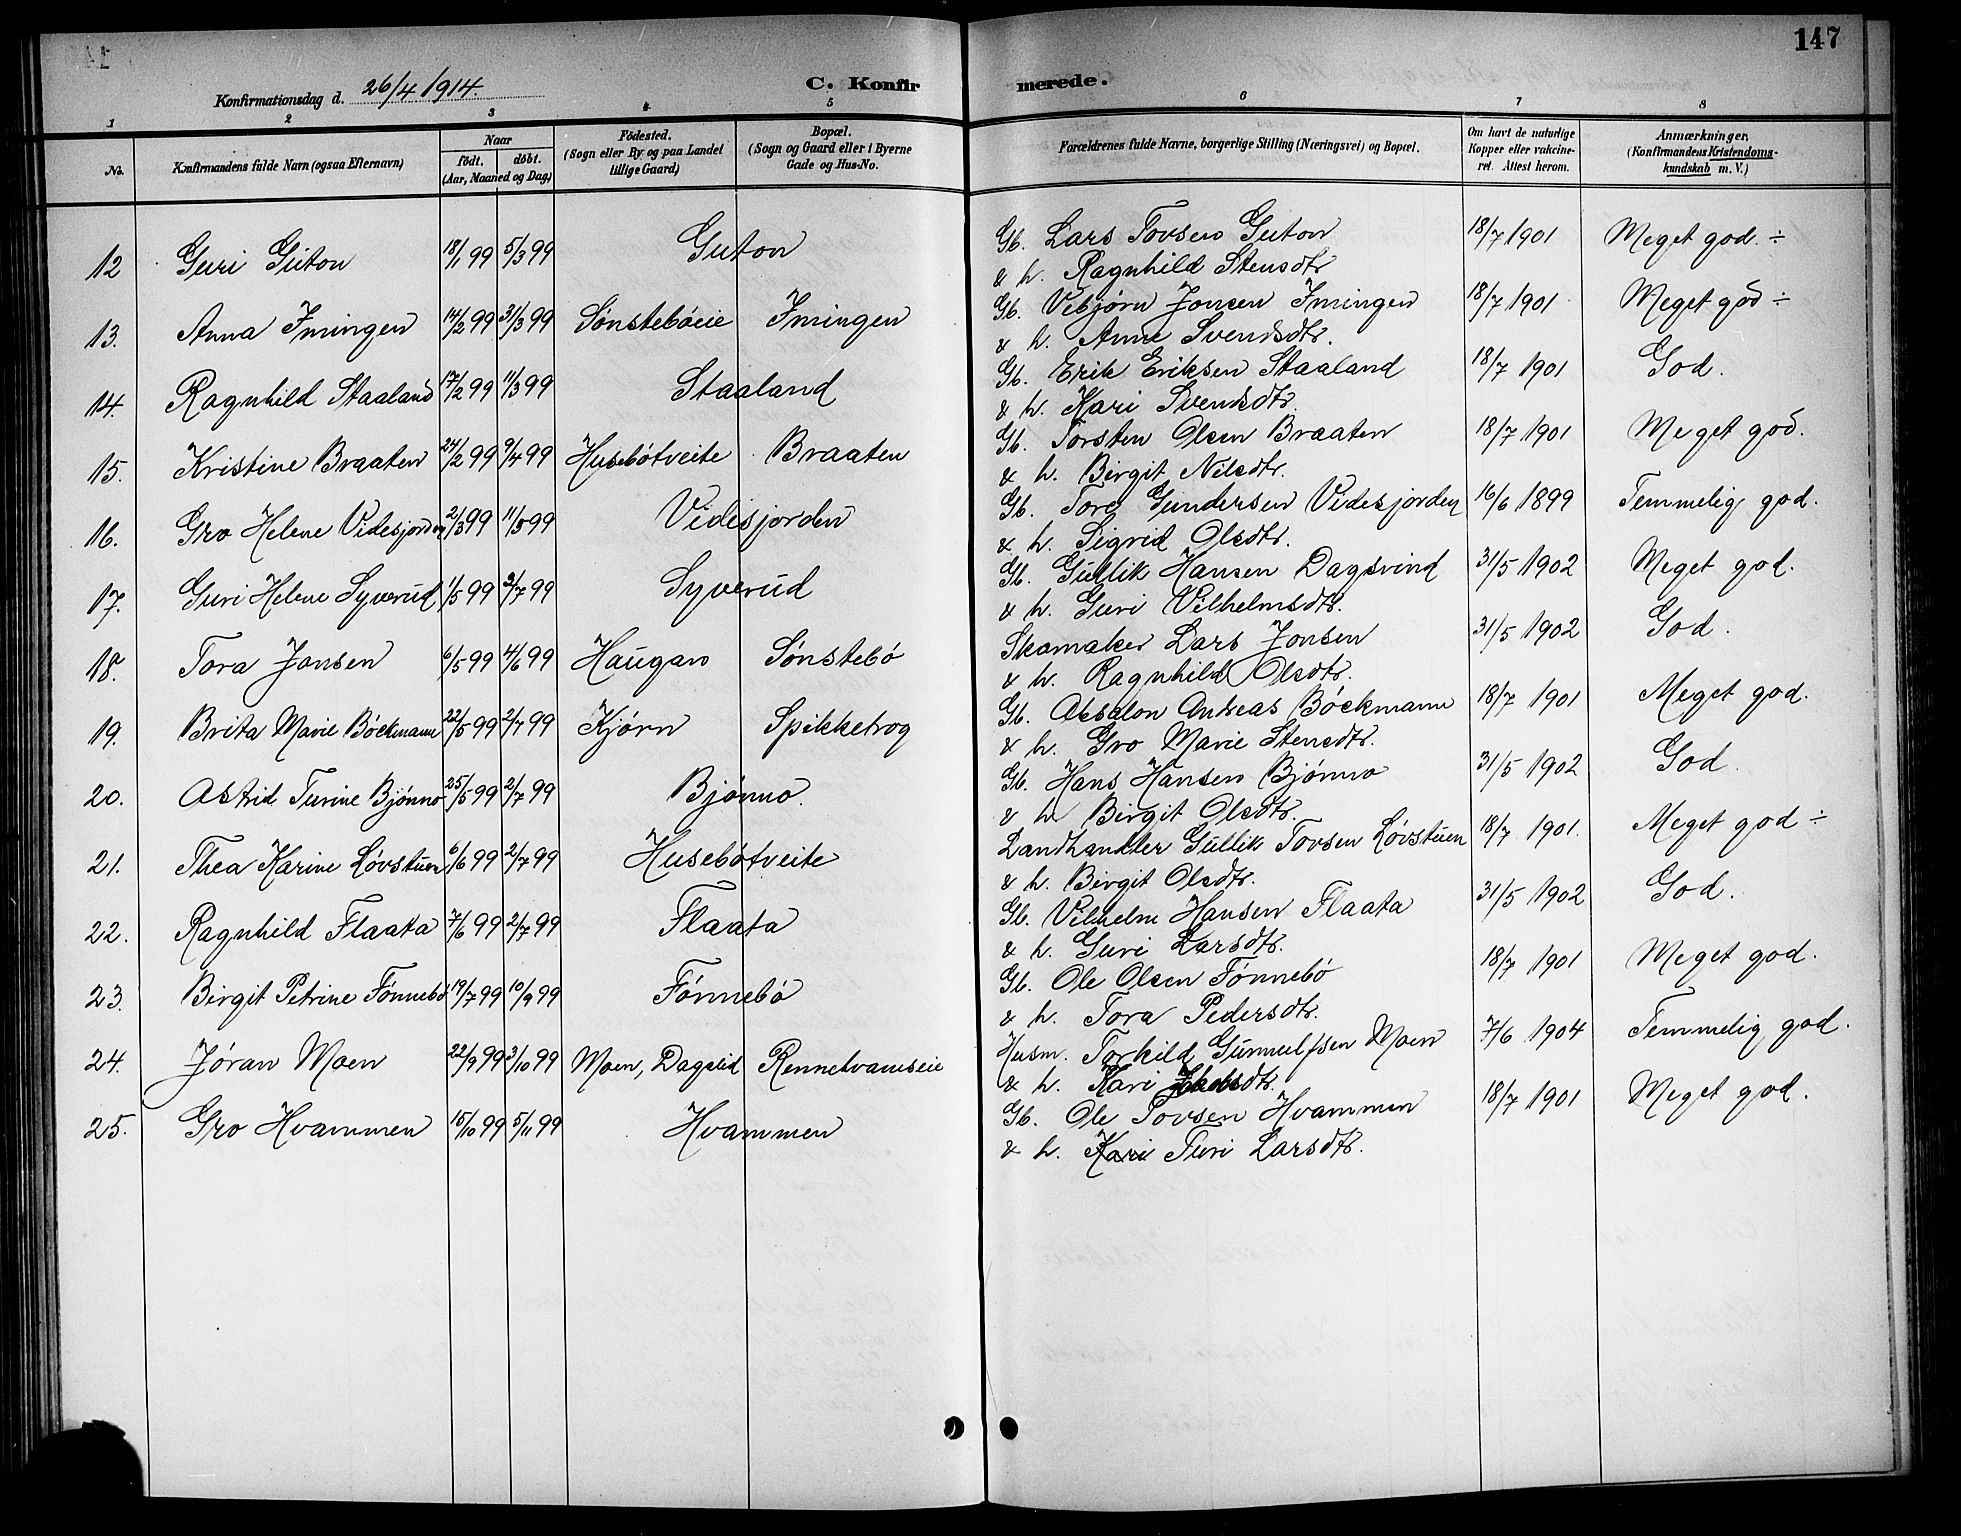 147
Konfirmationsdag d. 26/4 1914.
C. Konfirmerede.
1 2 3 4 5 6 7 8
No.
Konfirmandens fulde Navn (ogsaa Efternavn)
Naar
födt. döbt.
(Aar, Maaned og Dag)
Födested.
(Sogn eller By og paa Landet
tillige Gaard)
Bopæl.
(Sogn og Gaard eller i Byerne
Gade og Hus-No.
Forældrenes fulde Navne, borgerlige Stilling (Næringsvei) og Bopæl.
Om havt de naturlige
Kopper eller vakcine-
ret. Attest herom.
Anmærkninger,
(Konfirmandens Kristendoms-
kundskab m. V.)
12 Guri Guton 18/1 99 5/3 99 Guton Gb. Lars Tovsen Guton 18/7 1901 Meget god ÷
& h. Ragnhild Stensdtr
13. Anna Imingen 14/2 99 31/3 99 Sønstebøeie Imingen Gb. Vebjørn Jonsen Imingen 18/7 1901 Meget god ÷
& h. Anne Svendsdtr.
14. Ragnhild Staaland 17/2 99 11/3 99 Staaland Gb. Erik Eriksen Staaland 18/7 1901 God.
& h. Kari Svendsdtr
15. Kristine Braaten 24/2 99 9/4 99 Husebøtveite Braaten Gb. Torsten Olsen Braaten 18/7 1901 Meget god.
& h. Birgit Nilsdtr.
16. Gro Helene Videsjorden 2/3 99 11/5 99 Videsjorden Gb. Tore Gundersen Videsjorden 16/6 1899 Temmelig god.
& h. Sigrid Olsdtr.
17. Guri Helene Syverud 1/5 99 2/7 99 Syverud Gb. Gullik Hansen Dagsvind 31/5 1902 Meget god.
& h. Guri Vilhelmsdtr.
18. Tora Jonsen 6/5 99 4/6 99 Haugan Sønstebø Skomaker Lars Jonsen 31/5 1902 God.
& h. Ragnhild Olsdtr.
19. Brita Marie Bøckmann 22/5 99 2/7 99 Kjørn Spikketrog Gb. Absalon Andreas Bøckmann 18/7 1901 Meget god.
& h. Gro Marie Stensdtr.
20. Astrid Turine Bjønno 25/5 99 2/7 99 Bjønno. Gb. Hans Hansen Bjønno 31/5 1902 God.
& h Birgit Olsdtr.
21. Thea Karine Løvstuen 6/6 99 2/7 99 Husebøtveite Landhandler Gullik Tovsen Løvstuen 18/7 1901. Meget god ÷
& h. Birgit Olsdtr.
22. Ragnhild Flaata 7/6 99 2/7 99 Flaata Gb. Vilhelm Hansen Flaata 31/5 1902 God.
& h. Guri Larsdtr.
23. Birgit Petrine Fønnebø 19/7 99 10/9 99 Fønnebø Gb. Ole Olsen Fønnebø 18/7 1901 Meget god.
& h. Tora Pedersdtr.
24. Jøran Moen 22/9 99 3/10 99 Moen, Dagslid Rennehvamseie Husm. Torkild Gunnulfsen Moen 7/6 1904 Temmelig god.
& h. Kari Jakobsdtr.
25. Gro Hvammen 15/10 99 5/11 99 Hvammen Gb. Ole Tovsen Hvammen 18/7 1901 Meget god.
& h. Kari Turi Larsdtr.